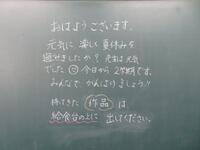 おはようございます。
元気に 楽しく 夏休みを
過ごしましたか? 先生は 元気
でした☺ 今日から 2学期です。
みんなで がんばりましょう!!
持ってきた 作品 は
給食台の上に 出してください。